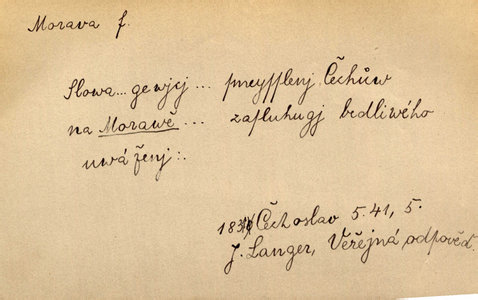 Morava f.
Slowa... gewjcj... smeysslenj Čechůw
na Morawě... zasluhugj bedliwého
uwáženj:.
Čechoslav 5.41, 5.
J. Langer, Veřejná odpověď.